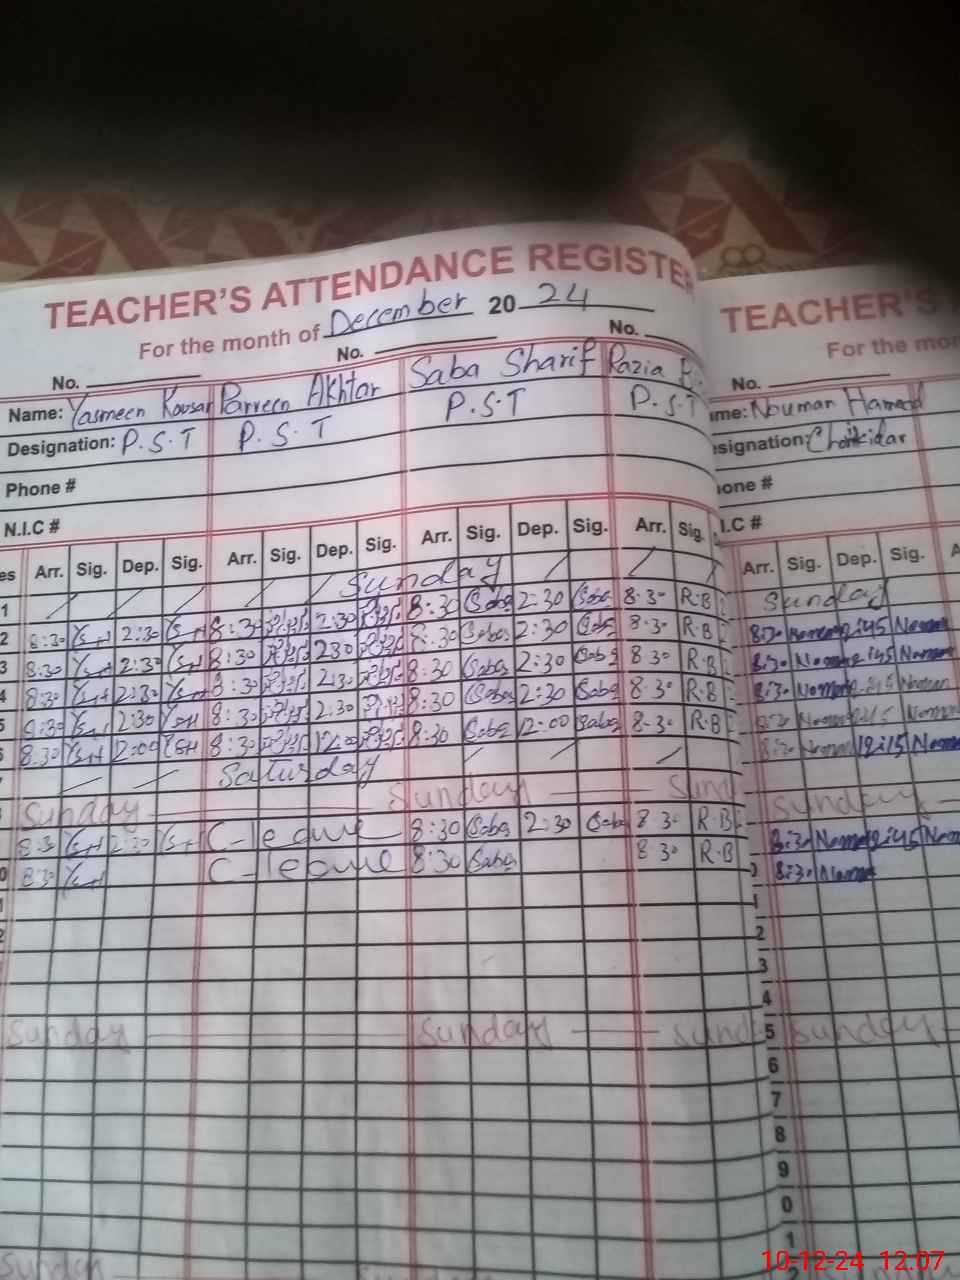 TEACHER'S ATTENDANCE REGISTER
For the month of December 20 24
No. No. No.
Name: Yasmeen Kousar Parveen Akhtar Saba Sharif Razia B.
Designation: P.S.T P.S.T P.S.T P.S.T
Phone #
N.I.C #
Arr. Sig. Dep. Sig. Arr. Sig. Dep. Sig. Arr. Sig. Dep. Sig. Arr. Sig.
1 Sunday
2 8:30 2:30 8:30 2:30 8:30 Saba 2:30 Saba 8:30 R.B
3 8:30 2:30 8:30 2:30 8:30 Saba 2:30 Saba 8:30 R.B
4 8:30 2:30 8:30 2:30 8:30 Saba 2:30 Saba 8:30 R.B
5 8:30 2:30 8:30 2:30 8:30 Saba 2:30 Saba 8:30 R.B
6 8:30 12:00 8:30 12:00 8:30 Saba 12:00 Saba 8:30 R.B
Saturday
Sunday Sunday Sund
8:30 2:30 C-leave 8:30 Saba 2:30 Saba 8:30 R.B
0 8:30 C-leave 8:30 Saba 8:30 R.B
Sunday Sunday Sund
Sunday
TEACHER'S
For the mon
No.
Name: Nouman Hameed
Designation: Chokidar
Phone #
N.I.C #
Arr. Sig. Dep. Sig. A
Sunday
8:30 Noman 2:45 Noman
8:30 Noman 2:45 Noman
8:30 Noman 2:45 Noman
8:30 Noman 2:45 Noman
8:30 Noman 12:15 Noman
Sunday
8:30 Noman 2:45 Noman
8:30 Noman
1
2
3
4
5 Sunday
6
7
8
9
0
1
10-12-24 12.07